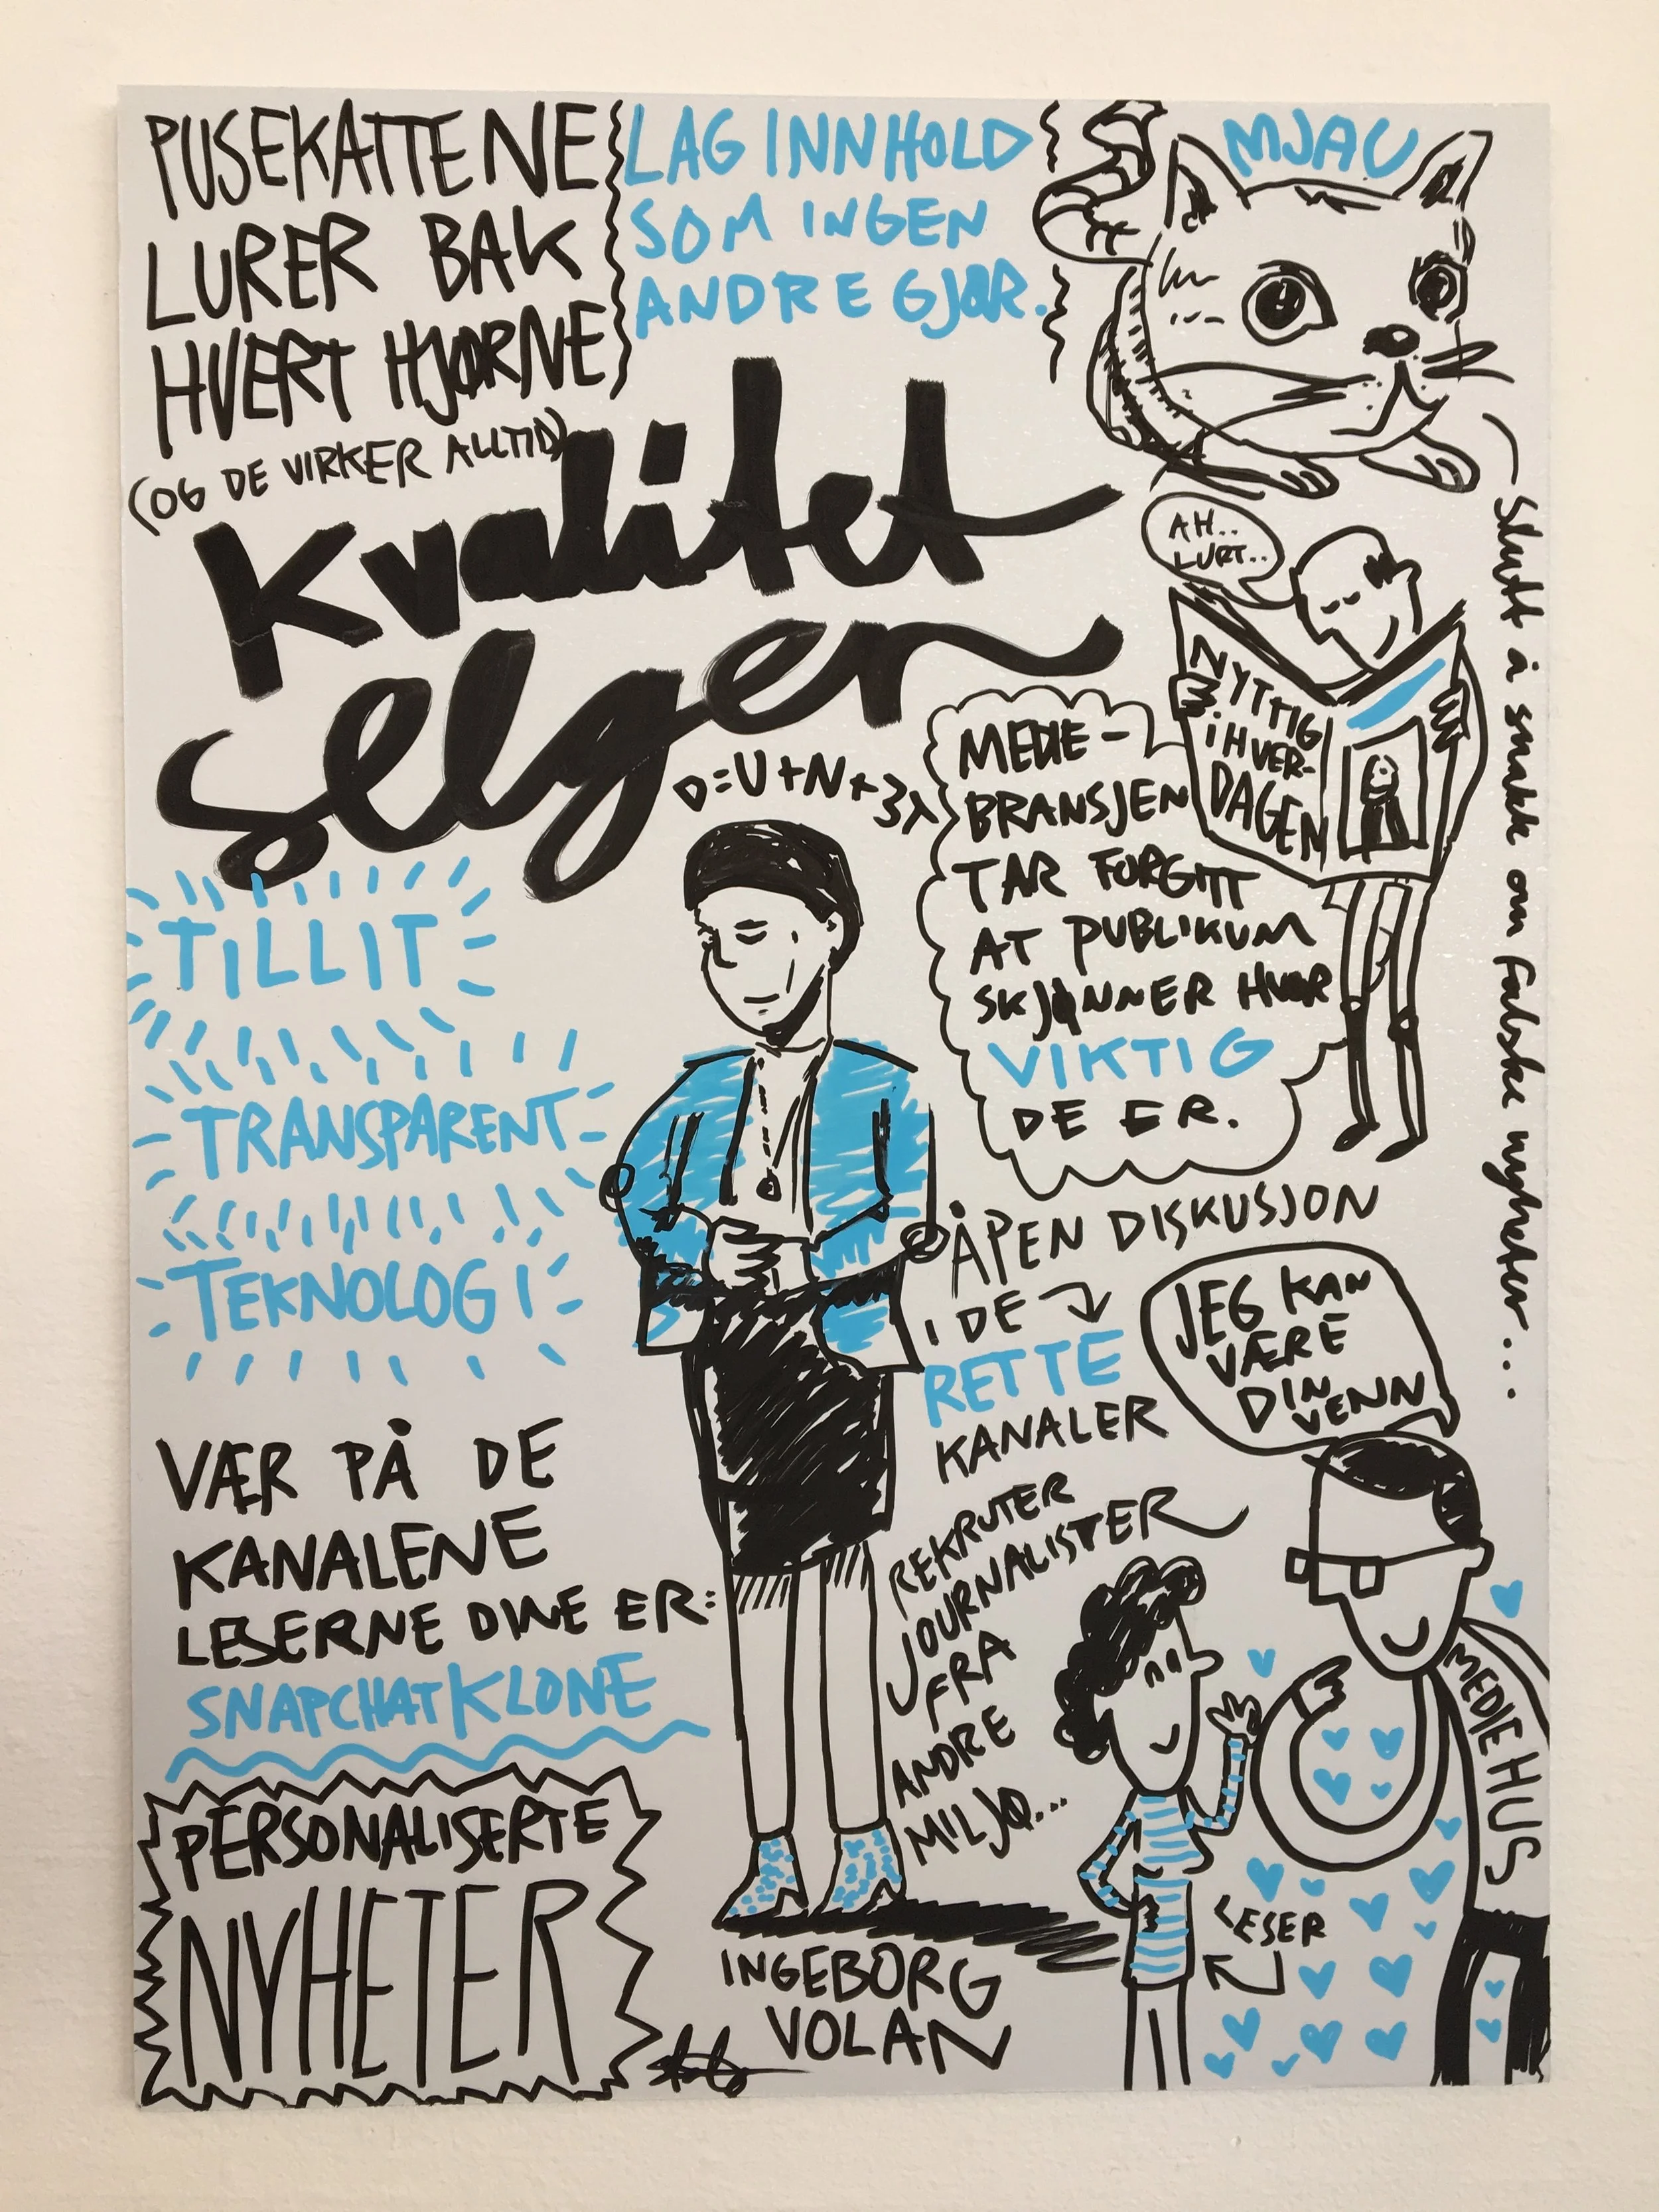 PUSEKATTENE
LURER BAK
HVERT HJØRNE
(OG DE VIRKER ALLTID)
LAG INNHOLD
SOM INGEN
ANDRE GJØR.
MJAU
Kvalitet
selger
AH..
LURT..
NYTTIG
I HVER-
DAGEN
Slutt å snakk om falske nyheter...
MEDIE-
BRANSJEN
TAR FORGITT
AT PUBLIKUM
SKJØNNER HVOR
VIKTIG
DE ER.
TILLIT
TRANSPARENT
TEKNOLOGI
ÅPEN DISKUSJON
I DE
RETTE
KANALER
JEG KAN
VÆRE
DIN
VENN
VÆR PÅ DE
KANALENE
LESERNE DINE ER:
SNAPCHATKLONE
REKRUTER
JOURNALISTER
FRA
ANDRE
MILJØ...
MEDIEHUS
LESER
PERSONALISERTE
NYHETER
INGEBORG
VOLAN